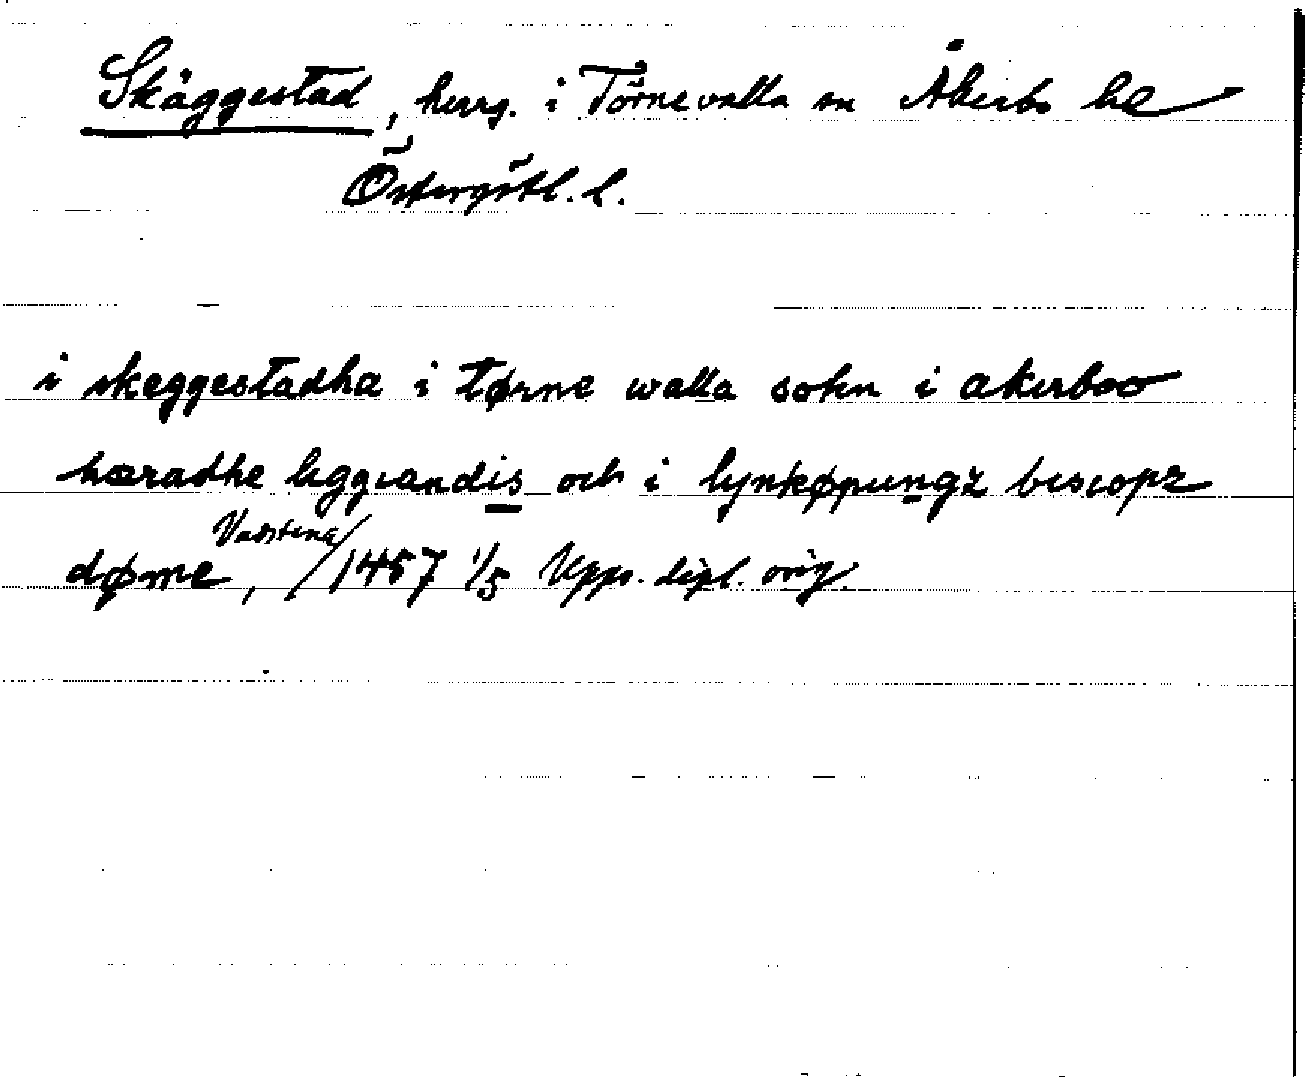 Skäggestad, herrg. i Törnevalla sn Åkerbo hd
Östergötl. l.
i skeggestadha i tørne walla sokn i akerboo
hæradhe liggiandis och i lynkøpungz biscops
døme, /Vadstena/ 1457 1/5 Upps. dipl. orig.